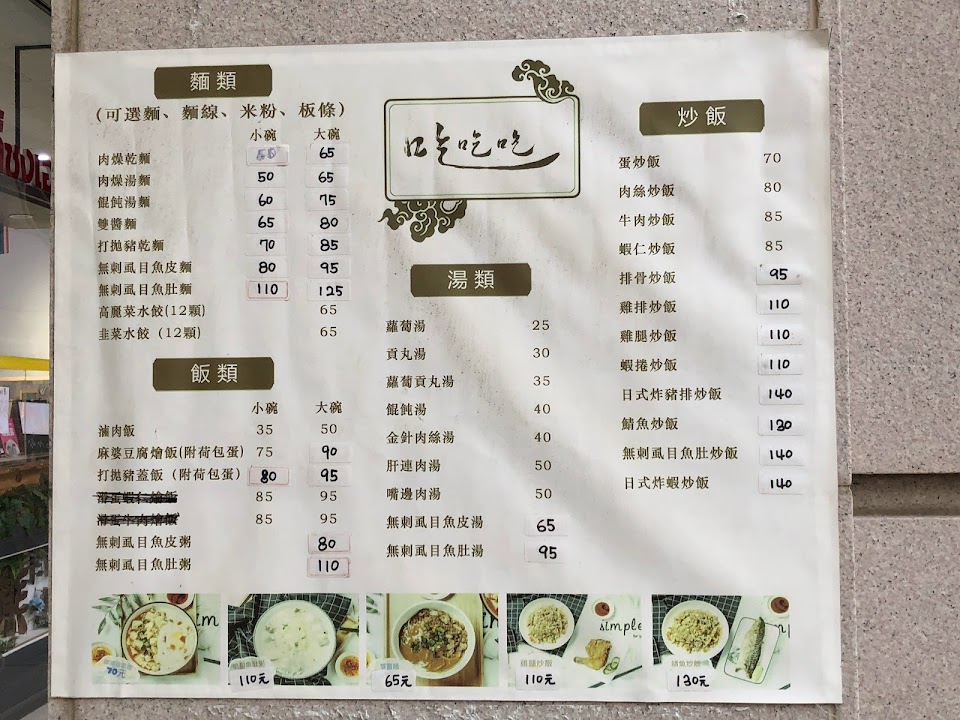 麵類
(可選麵、麵線、米粉、板條)
小碗 大碗
肉燥乾麵 65
肉燥湯麵 50 65
餛飩湯麵 60 75
雙醬麵 65 80
打拋豬乾麵 70 85
無刺虱目魚皮麵 80 95
無刺虱目魚肚麵 110 125
高麗菜水餃(12顆) 65
韭菜水餃(12顆) 65
飯類
小碗 大碗
滷肉飯 35 50
麻婆豆腐燴飯(附荷包蛋) 75 90
打拋豬蓋飯(附荷包蛋) 80 95
滑蛋蝦仁燴飯 85 95
滑蛋牛肉燴飯 85 95
無刺虱目魚皮粥 80
無刺虱目魚肚粥 110
吃吃吃
湯類
蘿蔔湯 25
貢丸湯 30
蘿蔔貢丸湯 35
餛飩湯 40
金針肉絲湯 40
肝連肉湯 50
嘴邊肉湯 50
無刺虱目魚皮湯 65
無刺虱目魚肚湯 95
炒飯
蛋炒飯 70
肉絲炒飯 80
牛肉炒飯 85
蝦仁炒飯 85
排骨炒飯 95
雞排炒飯 110
雞腿炒飯 110
蝦捲炒飯 110
日式炸豬排炒飯 140
鯖魚炒飯 130
無刺虱目魚肚炒飯 140
日式炸蝦炒飯 140
70元
110元
65元
simple
雞腿炒飯
110元
鯖魚炒飯
130元